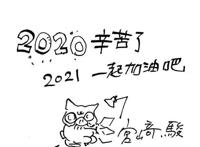 2020 辛苦了
2021 一起加油吧
宮崎駿